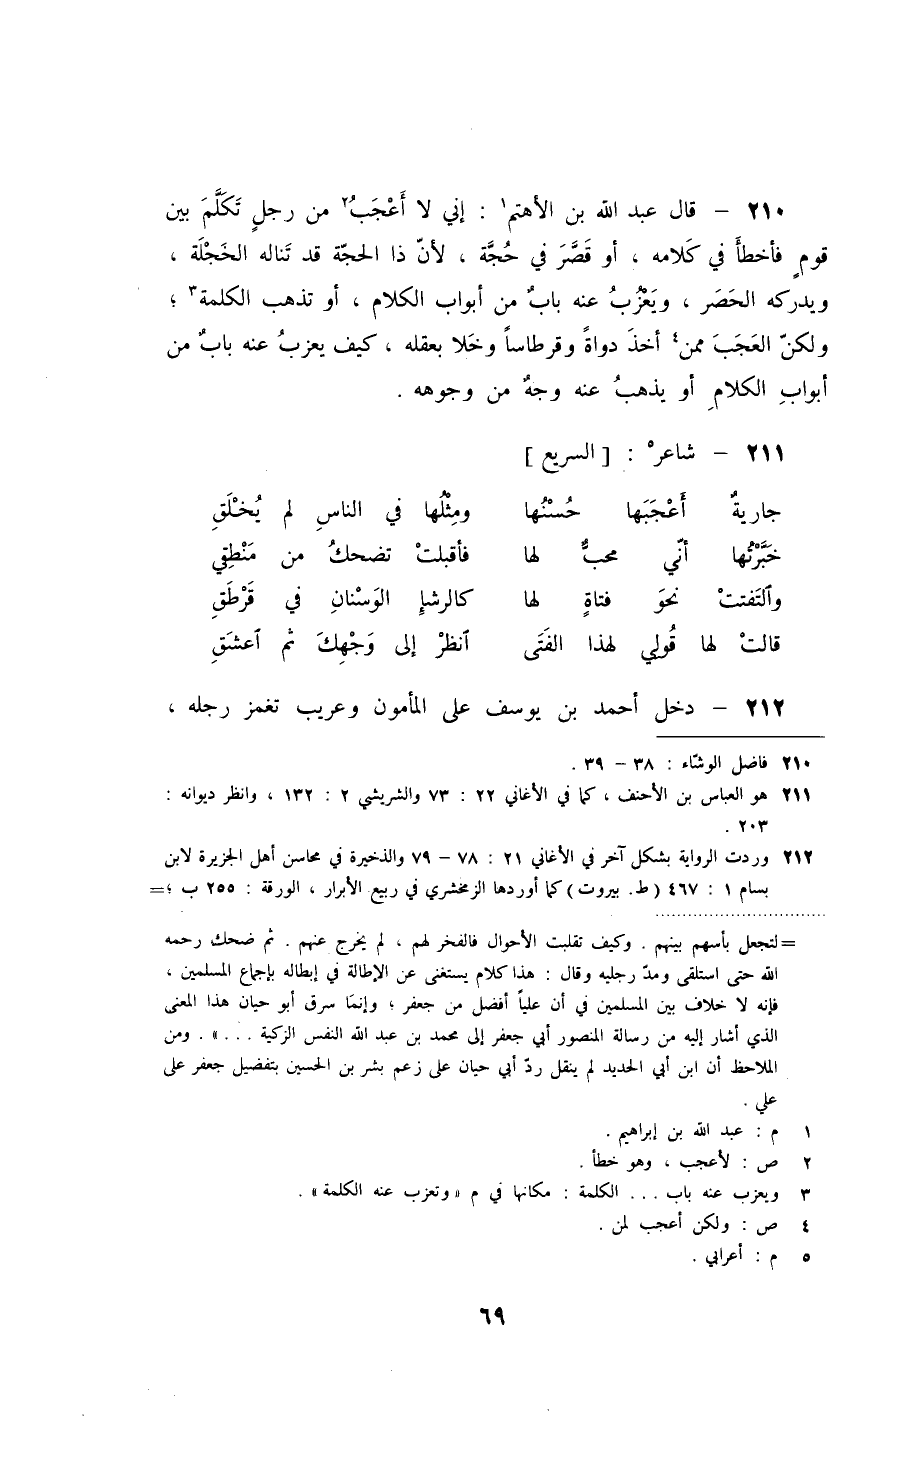 ٢١٠ – قال عبد الله بن الأهتم١ : إني لا أَعْجَبُ٢ من رجلٍ تَكَلَّمَ بين
قومٍ فأخطأَ في كَلامه ، أو قَصَّرَ في حُجَّة ، لأنّ ذا الحجّة قد تَناله الخَجْلَة ،
ويدركه الحَصَر ، ويَعْزُبُ عنه بابٌ من أبواب الكلام ، أو تذهب الكلمة٣ ؛
ولكنّ العَجَبَ ممن٤ أخذَ دواةً وقرطاساً وخَلا بعقله ، كيف يعزبُ عنه بابٌ من
أبوابِ الكلامِ أو يذهبُ عنه وجهٌ من وجوهه .
٢١١ – شاعر٥ : [ السريع ]
جاريةٌ أَعْجَبَها حُسْنُها ومِثْلُها في الناسِ لم يُخْلَقِ
خَبَّرْتُها أنّي محبٌّ لها فأقبلتْ تضحكُ من مَنْطِقِي
وٱلتَفتتْ نحوَ فتاةٍ لها كالرشإِ الوَسْنانِ في قَرْطَقِ
قالتْ لها قُولي لهذا الفَتَى ٱنظرْ إلى وَجْهِكَ ثم ٱعشَقِ
٢١٢ – دخل أحمد بن يوسف على المأمون وعريب تغمز رجله ،
٢١٠ فاضل الوشّاء : ٣٨ – ٣٩ .
٢١١ هو العباس بن الأحنف ، كما في الأغاني ٢٢ : ٧٣ والشريشي ٢ : ١٣٢ ، وانظر ديوانه :
٢٠٣ .
٢١٢ وردت الرواية بشكل آخر في الأغاني ٢١ : ٧٨ – ٧٩ والذخيرة في محاسن أهل الجزيرة لابن
بسام ١ : ٤٦٧ (ط. بيروت) كما أوردها الزمخشري في ربيع الأبرار ، الورقة : ٢٥٥ ب ؛=
=لتجعل بأسهم بينهم . وكيف تقلبت الأحوال فالفخر لهم ، لم يخرج عنهم . ثم ضحك رحمه
الله حتى استلقى ومدّ رجليه وقال : هذا كلام يستغنى عن الإطالة في إبطاله بإجماع المسلمين ،
فإنه لا خلاف بين المسلمين في أن علياً أفضل من جعفر ؛ وإنما سرق أبو حيان هذا المعنى
الذي أشار إليه من رسالة المنصور أبي جعفر إلى محمد بن عبد الله النفس الزكية . . .» . ومن
الملاحظ أن ابن أبي الحديد لم ينقل ردّ أبي حيان على زعم بشر بن الحسين بتفضيل جعفر على
علي .
١ م : عبد الله بن إبراهيم .
٢ ص : لأعجب ، وهو خطأ .
٣ ويعزب عنه باب . . . الكلمة : مكانها في م «وتعزب عنه الكلمة» .
٤ ص : ولكن أعجب لمن .
٥ م : أعرابي .
٦٩